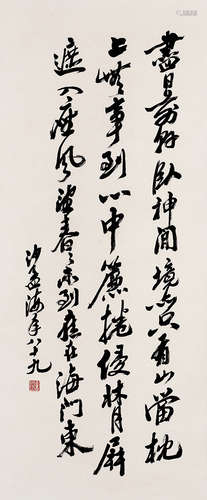 盡日前軒臥神閒境亦空有山當枕
上無事到心中簾捲侵牀日屏
遮入座風望春々未到應在海門東
沙孟海年八十九